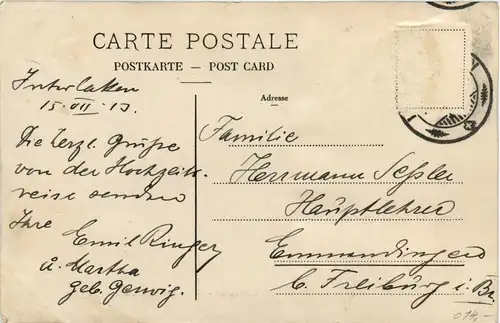 CARTE POSTALE
POSTKARTE — POST CARD
Adresse
Interlaken
15. VII. 13.
Die herzl. Grüße
von der Hochzeits-
reise senden
Ihre
Emil Ringer
u. Martha
geb. Gerwig.
Familie
Herrmann
Hauptlehrer
Emmendingen
b. Freiburg i. Br.